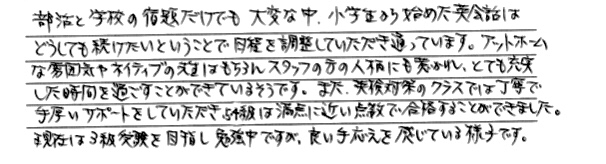 部活と学校の宿題だけでも大変な中、小学生から始めた英会話は
どうしても続けたいということで日程を調整していただき通っています。アットホーム
な雰囲気やネイティブの先生はもちろんスタッフの方の人柄にも惹かれ、とても充実
した時間を過ごすことができているそうです。また、英検対策のクラスでは丁寧で
手厚いサポートをしていただき5,4級は満点に近い点数で合格することができました。
現在は3級受験を目指し勉強中ですが、良い手応えを感じている様子です。